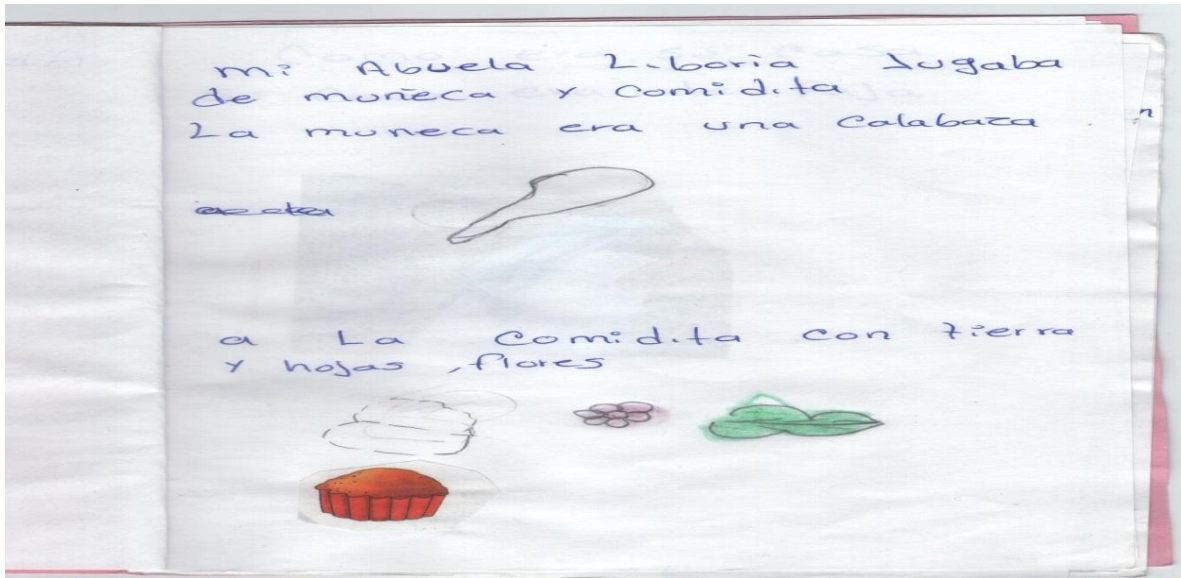 mi Abuela Liboria Jugaba
de muñeca y Comidita
La muneca era una Calabaza
a La Comidita con tierra
y hojas, flores